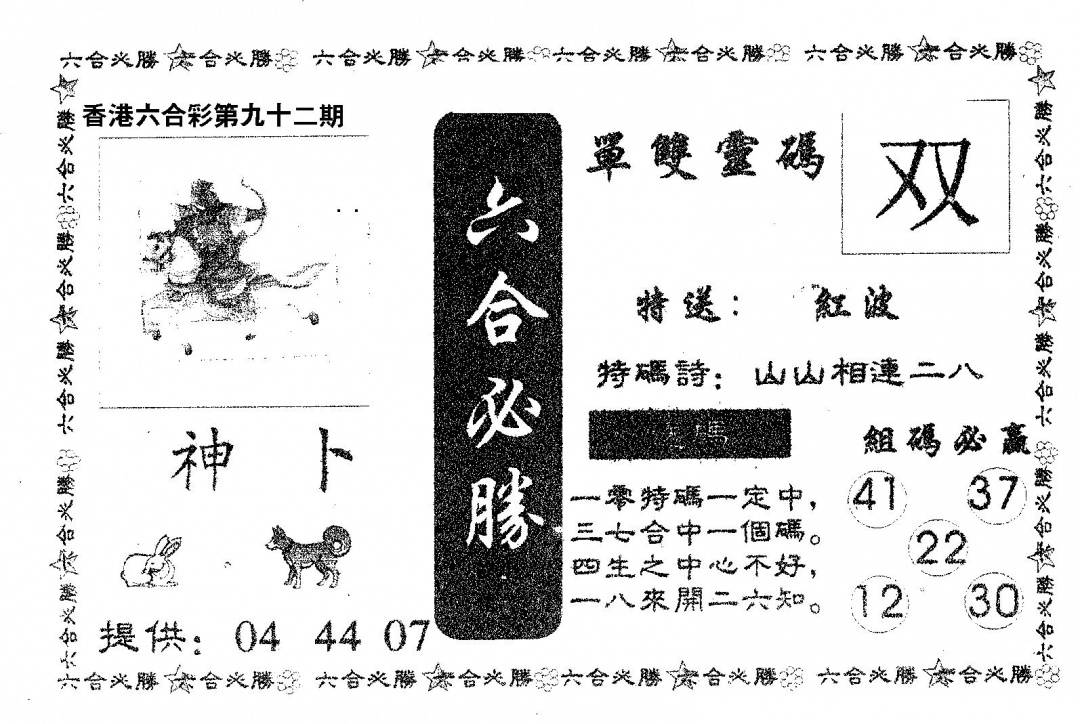 六合必勝 六合必勝 六合必勝 六合必勝 六合必勝 六合必勝 六合必勝 六合必勝
香港六合彩第九十二期
神 卜
提供: 04 44 07
六合必勝
單雙靈碼
双
特送: 紅波
特碼詩: 山山相連二八
碼
一零特碼一定中,
三七合中一個碼。
四生之中心不好,
一八來開二六知。
組碼必赢
41 37
22
12 30
六合必勝 六合必勝 六合必勝 六合必勝
六合必勝 六合必勝 六合必勝 六合必勝
六合必勝 六合必勝 六合必勝 六合必勝 六合必勝 六合必勝 六合必勝 六合必勝